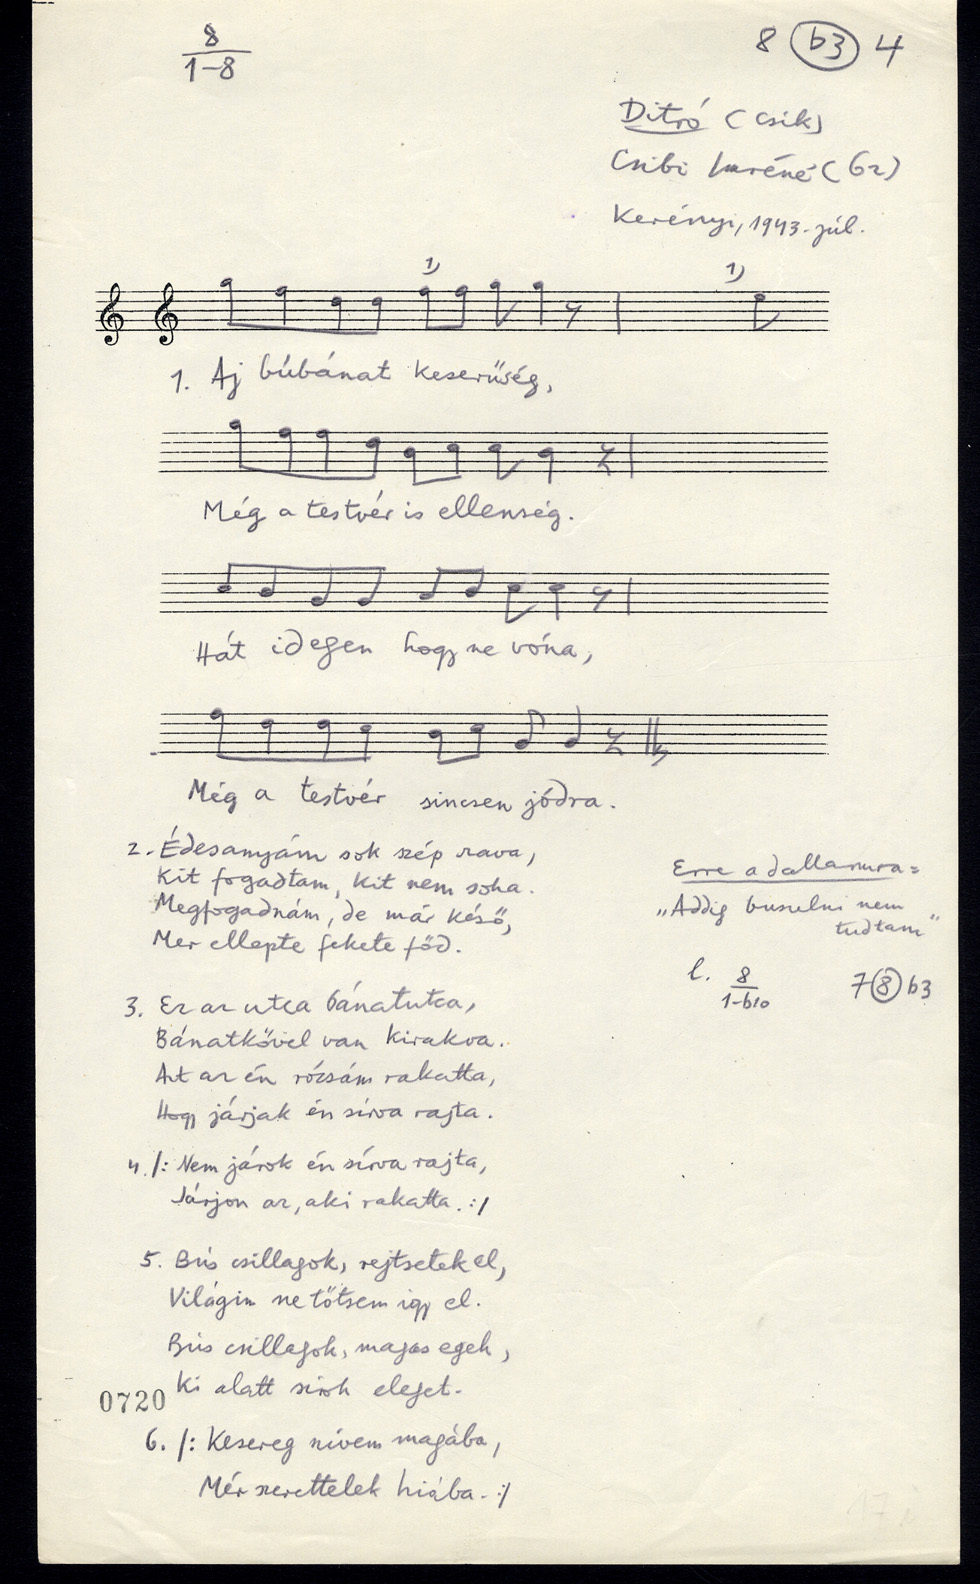 8
1-8
8 b3 4
Ditró (Csík)
Csibi Imréné (62)
Kerényi, 1943. júl.
1)
1)
1. Aj búbánat keserűség,
Még a testvér is ellenség.
Hát idegen hogy ne vóna,
Még a testvér sincsen jódra.
2. Édesanyám sok szép szava,
Kit fogadtam, kit nem soha.
Megfogadnám, de már késő,
Mer ellepte fekete főd.
3. Ez az utca bánatutca,
Bánatkővel van kirakva.
Azt az én rózsám rakatta,
Hogy járjak én sírva rajta.
4. /: Nem járok én sírva rajta,
Járjon az, aki rakatta. :/
5. Bús csillagok, rejtsetek el,
Világim ne tőtsem igy el.
Bús csillagok, magas egek,
Ki alatt sirok eleget.
6. /: Kesereg szivem magába,
Mér szerettelek hiába. :/
Erre a dallamra =
„Addig buselni nem
tudtam"
l. 8
1-b10
7 8 b3
0720